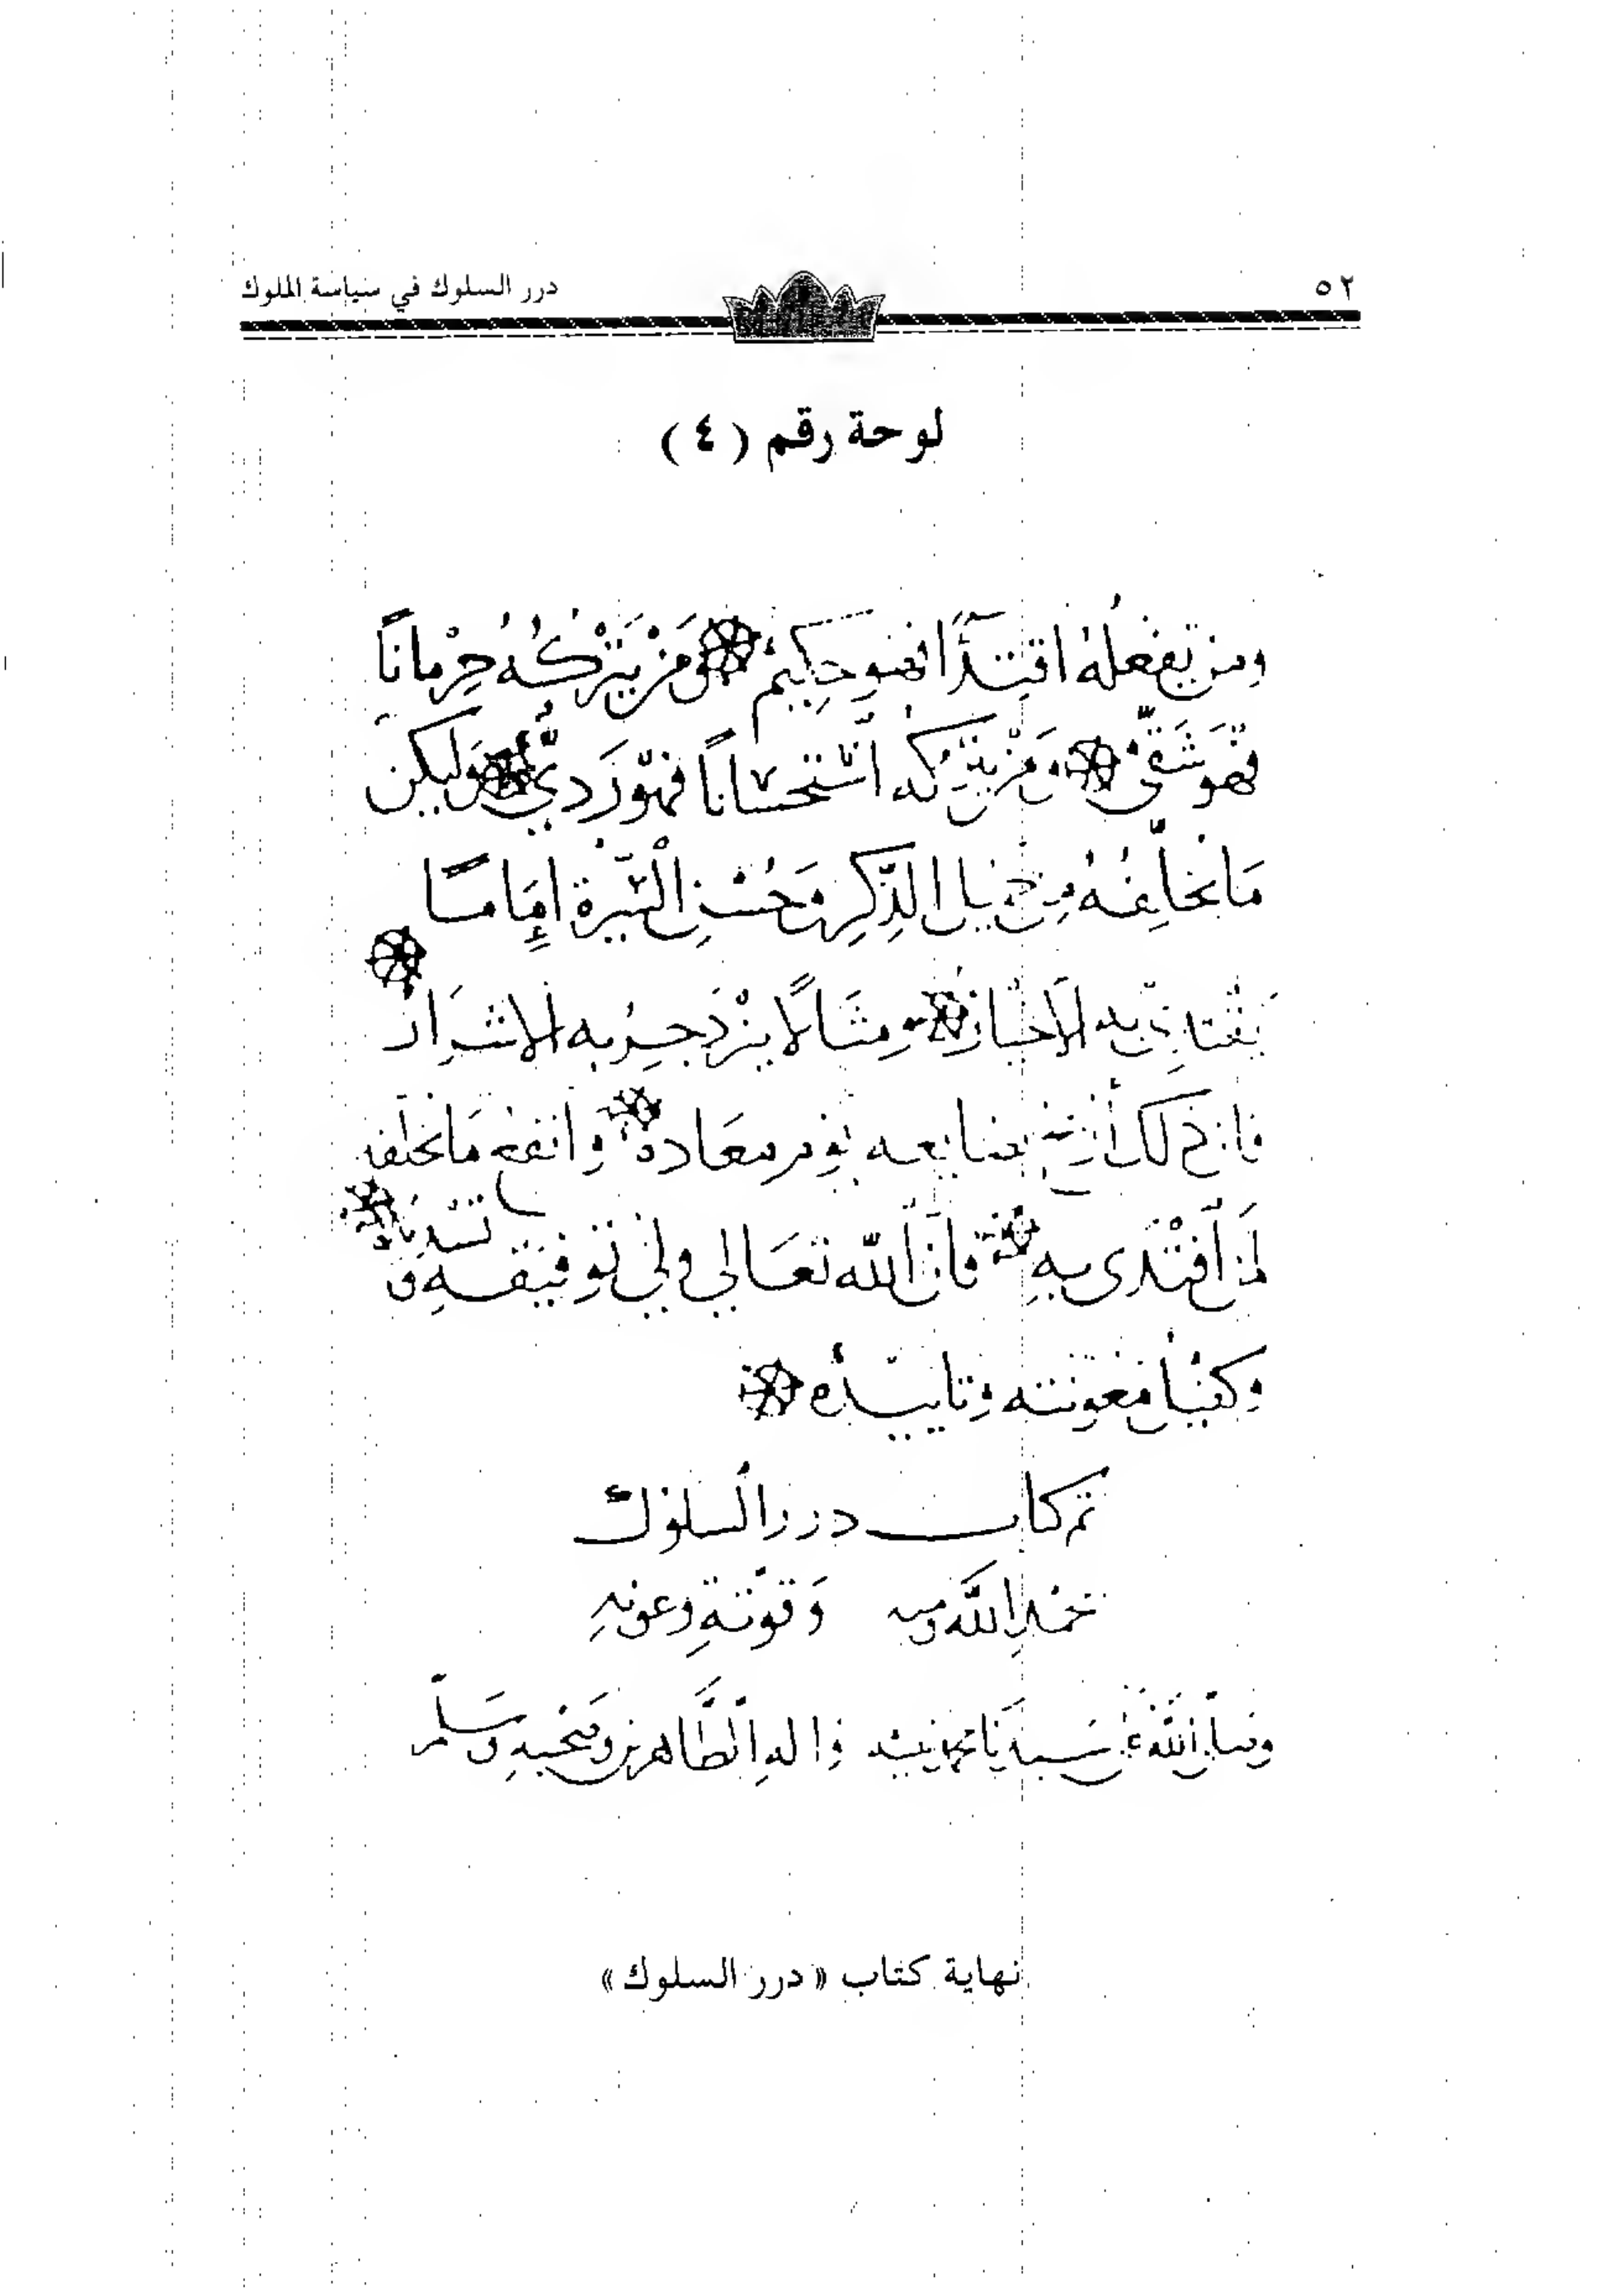 ٥٢
درر السلوك في سياسة الملوك
لوحة رقم ( ٤ )
ومن يفعله اقتدآءً فهو حكيم ومَن يَتْركُهُ حِرْمانًا
فهو شَقيّ ومَن يتركه استحسانًا فهو رَديّ وليكن
مَا يخلّفُهُ من جميل الذِّكرِ وحُسْنِ السّيرة إمَامًا
يَقْتدي به الأخيار ومِثَالًا يزْدَجِرُ به الاشرَار
فان ذلك بضايعه يوم معاده وانفع مَا يخلفه
لمَن اقْتَدى بهِ فان الله تعَالى ولي توفيقهِ وتسْديده
وكفيل معونته وتاييده
تم كتاب درر السلوك
بحمد الله ومنه وَقوّتهِ وعونهِ
وصلى الله على سيدنا محمد نبيه واله الطَّاهرين وصَحْبهِ وسَلم
نهاية كتاب « درر السلوك »